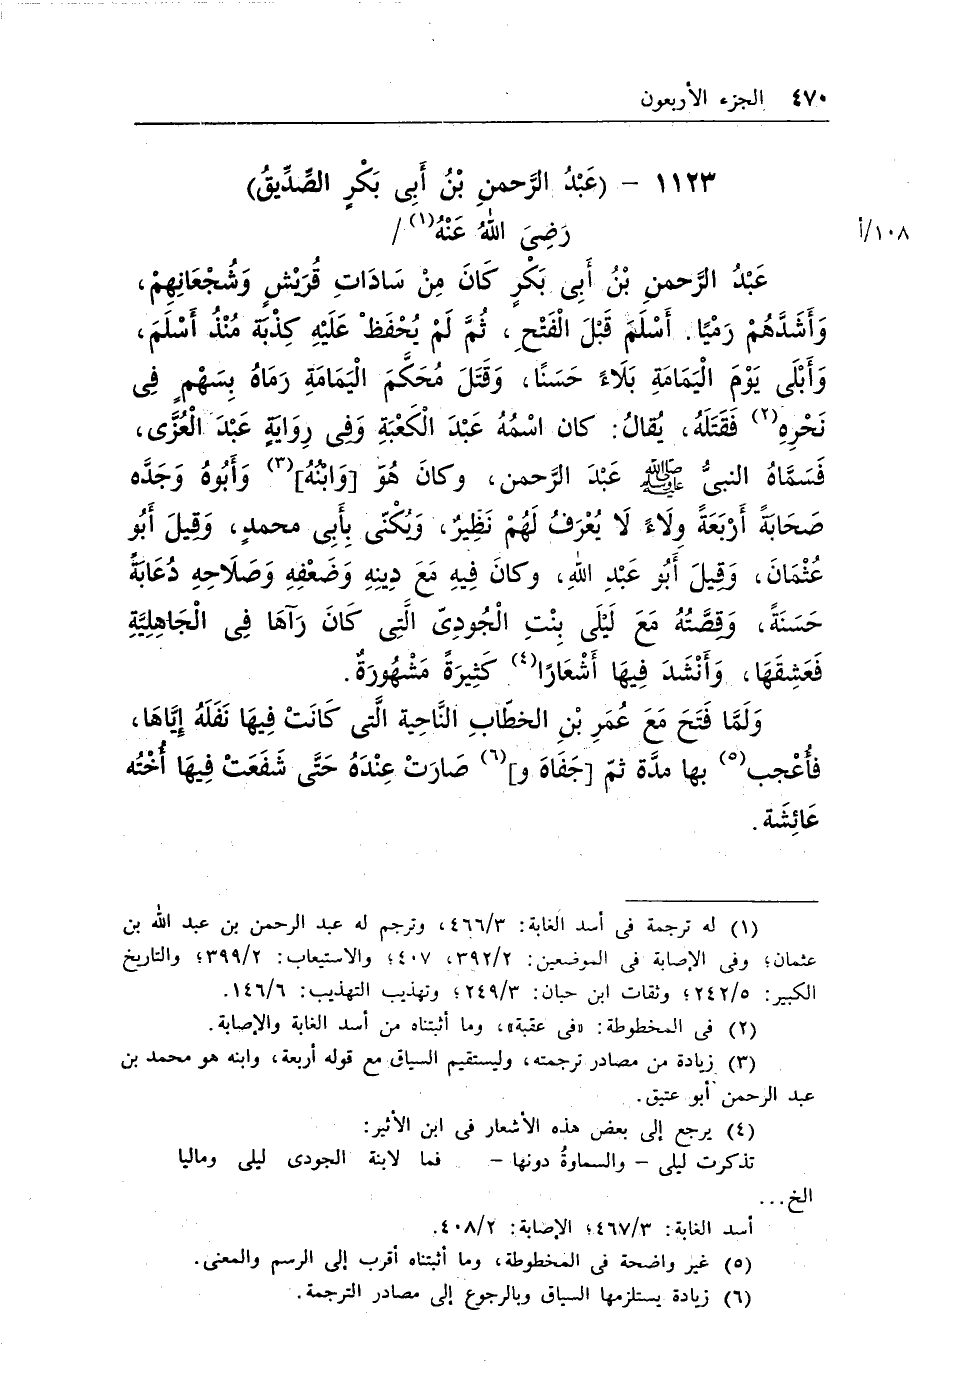 ٤٧٠ الجزء الأربعون
١١٢٣ - (عَبْدُ الرَّحمنِ بْنُ أَبِى بَكْرٍ الصِّدِّيقُ)
رَضِىَ اللهُ عَنْهُ(١) /
١٠٨/أ
عَبْدُ الرَّحمنِ بْنُ أَبِى بَكْرٍ كَانَ مِنْ سَادَاتِ قُرَيْشٍ وَشُجْعَانِهِمْ،
وَأَشَدَّهُمْ رَمْيًا. أَسْلَمَ قَبْلَ الْفَتْحِ، ثُمَّ لَمْ يُحْفَظْ عَلَيْهِ كِذْبَة مُنْذُ أَسْلَمَ،
وَأَبْلَى يَوْمَ الْيَمَامَةِ بَلَاءً حَسَنًا، وَقَتَلَ مُحَكَّمَ الْيَمَامَةِ رَمَاهُ بِسَهْمٍ فِى
نَحْرِهِ(٢) فَقَتَلَهُ، يُقالُ: كان اسْمُهُ عَبْدَ الْكَعْبَةِ وَفِى رِوَايَةٍ عَبْدَ الْعُزَّى،
فَسَمَّاهُ النبىُّ ﷺ عَبْدَ الرَّحمن، وكانَ هُوَ [وَابْنُهُ](٣) وَأَبُوهُ وَجَدَّه
صَحَابَةً أَرْبَعَةً وِلَاءً لَا يُعْرَفُ لَهُمْ نَظِيرٌ، وَيُكْنّى بِأَبِى محمدٍ، وَقِيلَ أَبُو
عُثْمَانَ، وَقِيلَ أَبُو عَبْدِ اللهِ، وكانَ فِيهِ مَعَ دِينِهِ وَضَعْفِهِ وَصَلَاحِهِ دُعَابَةً
حَسَنَةً، وَقِصَّتُهُ مَعَ لَيْلَى بِنْتِ الْجُودِىّ الَّتِى كَانَ رَآهَا فِى الْجَاهِلِيَّةِ
فَعَشِقَهَا، وَأَنْشَدَ فِيهَا أَشْعَارًا(٤) كَثِيرَةً مَشْهُورَةٌ.
وَلَمَّا فَتَحَ مَعَ عُمَرِ بْنِ الخطَّابِ النَّاحِية الَّتى كَانَتْ فِيهَا نَفَلَهُ إِيَّاهَا،
فأُعْجب(٥) بها مدَّة ثمّ [جَفَاهَ و](٦) صَارَتْ عِنْدَهُ حَتَّى شَفَعَتْ فِيهَا أُخْتُه
عَائِشَة.
(١) له ترجمة فى أسد الغابة: ٤٦٦/٣، وترجم له عبد الرحمن بن عبد الله بن
عثمان؛ وفى الإصابة فى الموضعين: ٣٩٢/٢، ٤٠٧؛ والاستيعاب: ٣٩٩/٢؛ والتاريخ
الكبير: ٢٤٢/٥؛ وثقات ابن حبان: ٢٤٩/٣؛ وتهذيب التهذيب: ١٤٦/٦.
(٢) فى المخطوطة: «فى عقبة»، وما أثبتناه من أسد الغابة والإصابة.
(٣) زيادة من مصادر ترجمته، وليستقيم السياق مع قوله أربعة، وابنه هو محمد بن
عبد الرحمن أبو عتيق.
(٤) يرجع إلى بعض هذه الأشعار فى ابن الأثير:
تذكرت ليلى - والسماوةُ دونها - فما لابنة الجودى ليلى وماليا
الخ...
أسد الغابة: ٤٦٧/٣؛ الإصابة: ٤٠٨/٢.
(٥) غير واضحة فى المخطوطة، وما أثبتناه أقرب إلى الرسم والمعنى.
(٦) زيادة يستلزمها السياق وبالرجوع إلى مصادر الترجمة.